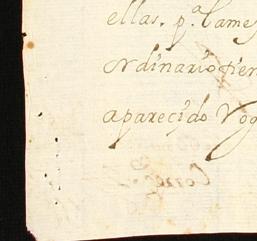 ellas. p.ª Came
ordinario tien
aparecido Vog
Correg.